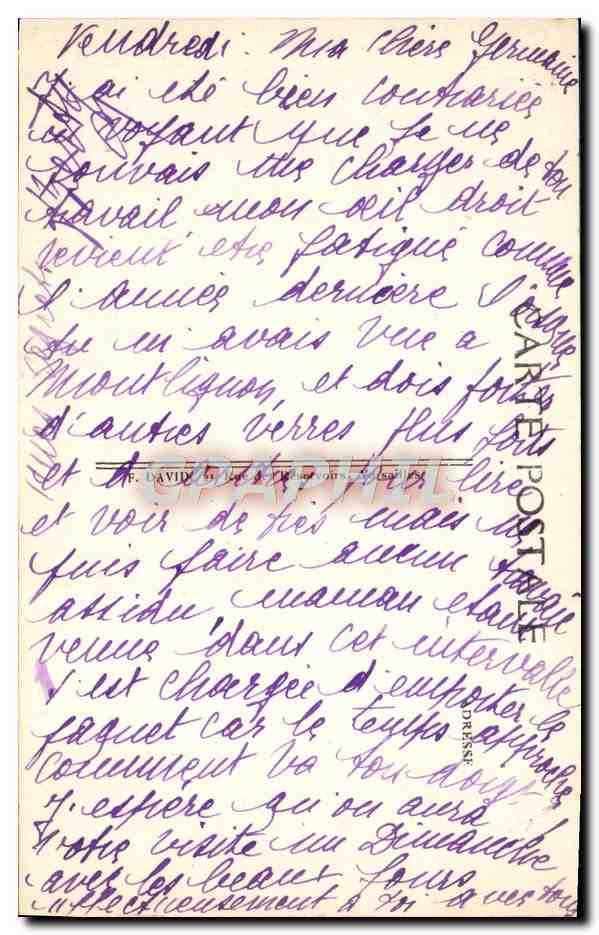 Vendredi. Ma chère Germaine
j'ai été bien contrariée
en voyant que je ne
pouvais me charger de ton
travail mon œil droit
revient être fatigué comme
l'année dernière
tu m'avais vue a
Montlignon, et dois
d'autres verres plus forts
et lire
et voir de près mais ne
puis faire aucun travail
assidu maman étant
venue dans cet intervalle
s'est chargée d'emporter le
paquet car le temps approche
comment va ton doigt
j'espère qu'on aura
votre visite un Dimanche
avec les beaux jours
affectueusement à toi avec
CARTE POSTALE
ADRESSE
F. DAVID, Rue des Réservoirs, Versailles
CARAPHIL